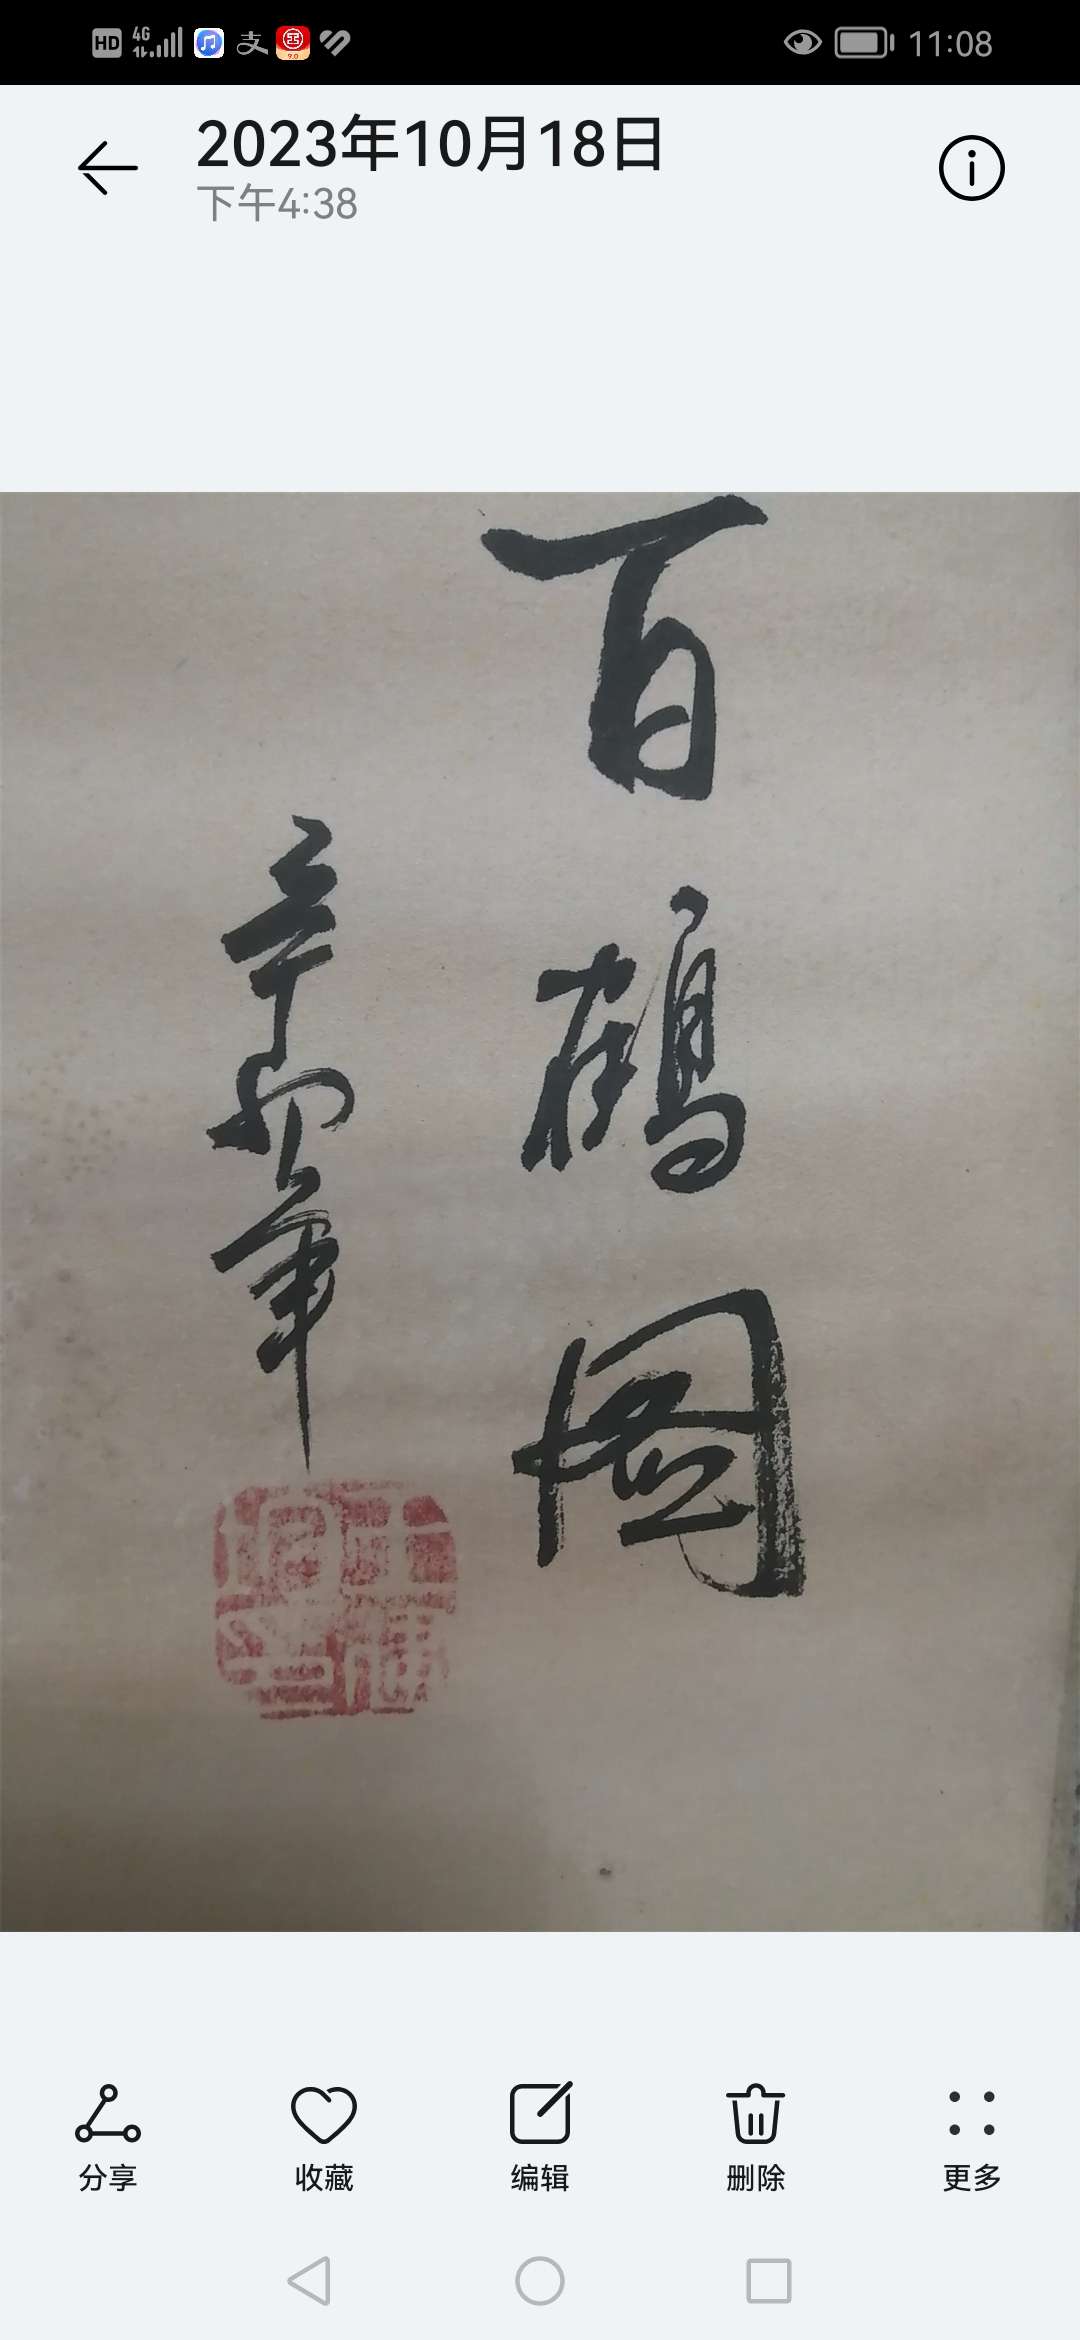 HD 4G 支 9.0 11:08
2023年10月18日
下午4:38
百鶴图
分享 收藏 编辑 删除 更多